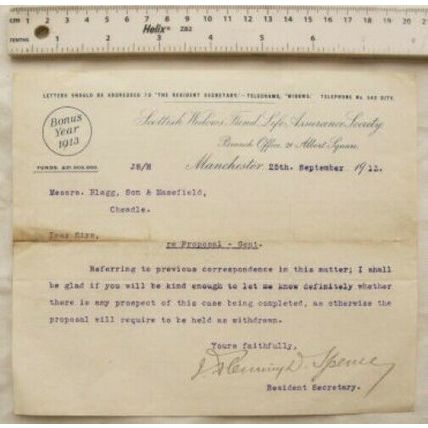 cm 1 2 3 4 5 6 7 8 9 10 11 12 13 14 15 16 17 18 19 20
Helix Z82
TENTHS 1 2 3 4 5 6
LETTERS SHOULD BE ADDRESSED TO "THE RESIDENT SECRETARY." TELEGRAMS, "WIDOWS." TELEPHONE No 542 CITY.
Bonus
Year
1913
Scottish Widows Fund Life Assurance Society
Branch Office, 21 Albert Square.
FUNDS
JS/H Manchester 25th. September 1913.
Messrs. Blagg, Son & Masefield,
Cheadle.
Dear Sirs,
re Proposal -
Referring to previous correspondence in this matter; I shall
be glad if you will be kind enough to let me know definitely whether
there is any prospect of this case being completed, as otherwise the
proposal will require to be held as withdrawn.
Yours faithfully,
Spence
Resident Secretary.